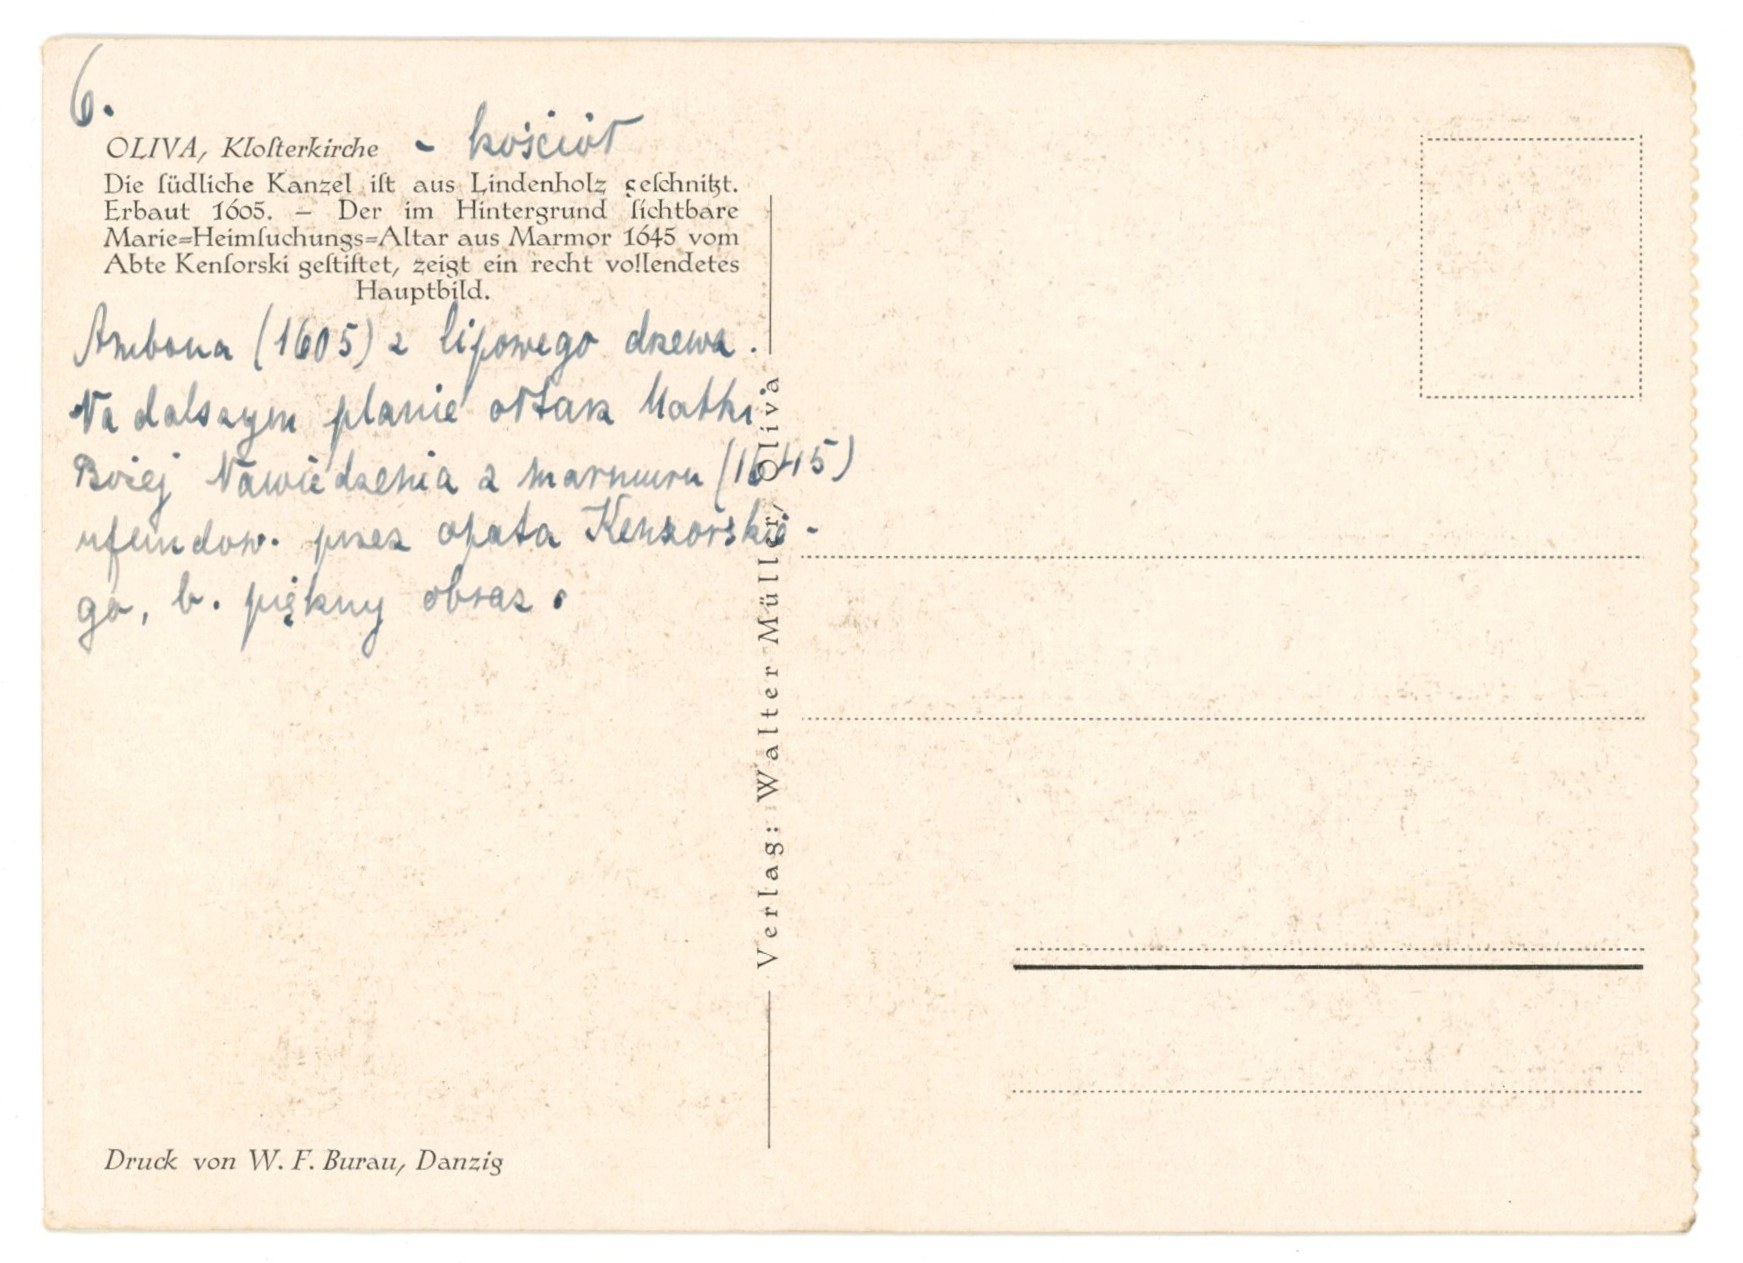 6.
OLIVA, Kloſterkirche - kościół
Die ſüdliche Kanzel iſt aus Lindenholz geſchnitzt.
Erbaut 1605. – Der im Hintergrund ſichtbare
Marie=Heimſuchungs=Altar aus Marmor 1645 vom
Abte Kenſorski geſtiftet, zeigt ein recht vollendetes
Hauptbild.
Ambona (1605) z lipowego drzewa.
Na dalszym planie ołtarz Matki
Bożej Nawiedzenia z marmuru (1645)
ufundow. przez opata Kenzorskie-
go, b. piękny obraz.
Verlag: Walter Müller, Oliva
Druck von W. F. Burau, Danzig